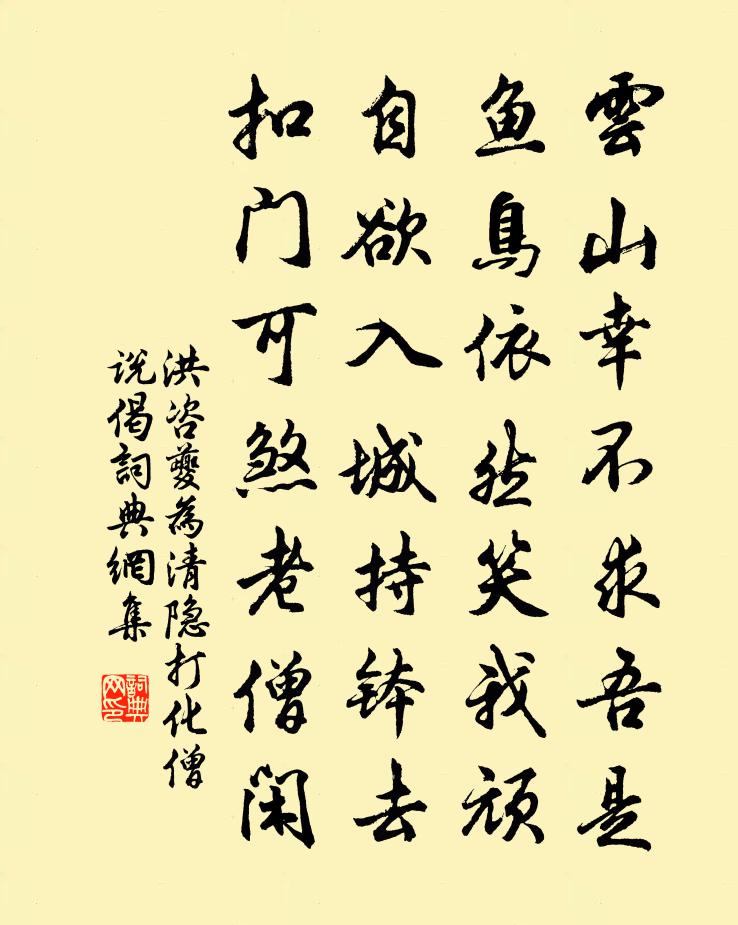 雲山幸不求吾是
鱼鳥依然笑我頑
自欲入城持钵去
扣门可煞老僧闲
洪咨夔為清隐打化僧
说偈詞典網集
詞典网印